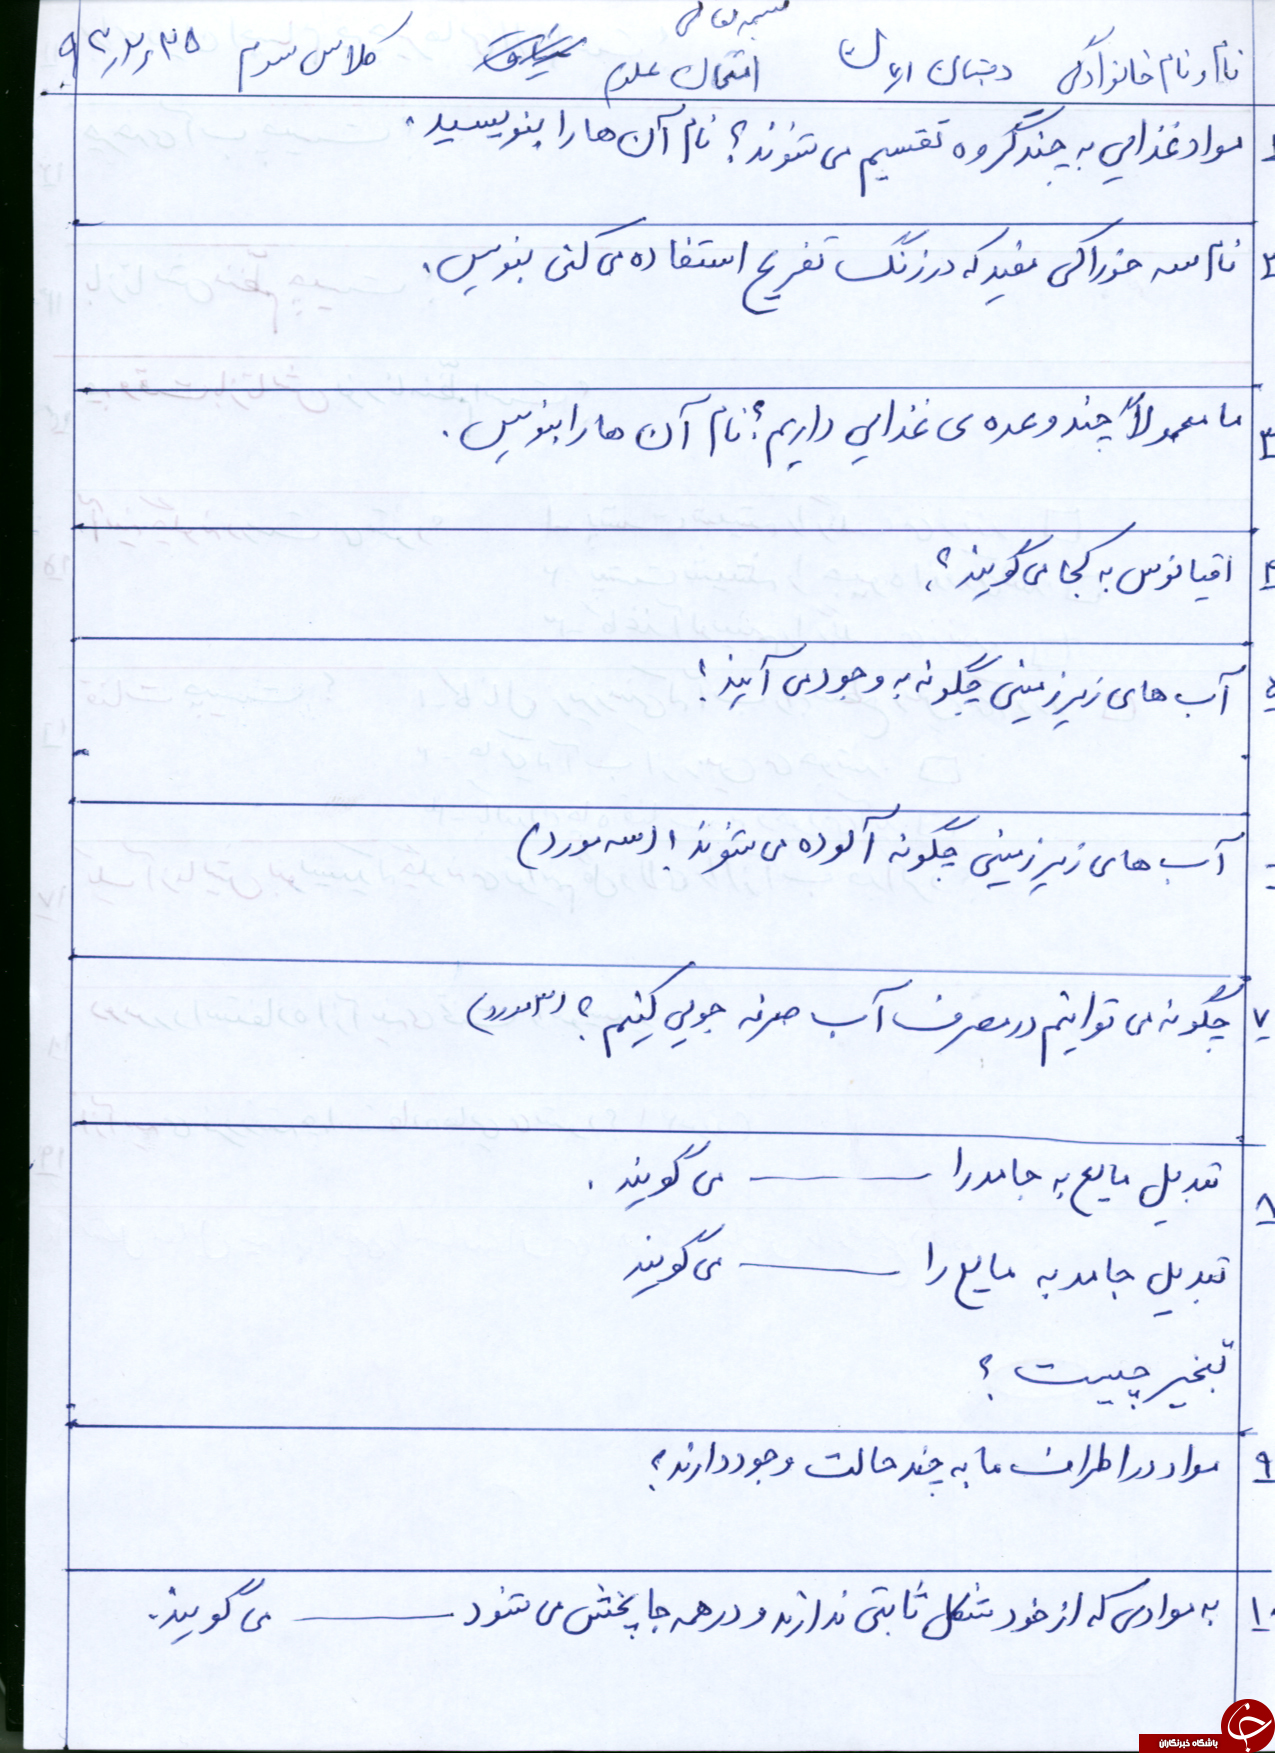 بسمه تعالی
نام و نام خانوادگی دبستان ایمان امتحان علوم کلاس سوم
۱ مواد غذایی به چند گروه تقسیم می شوند؟ نام آن ها را بنویسید.
۲ نام سه خوراکی مفید که در زنگ تفریح استفاده می کنی بنویس.
۳ ما معمولاً چند وعده ی غذایی داریم؟ نام آن ها را بنویس.
۴ اقیانوس به کجا می گویند؟
۵ آب های زیرزمینی چگونه به وجود می آیند؟
۶ آب های زیرزمینی چگونه آلوده می شوند؟ (سه مورد)
۷ چگونه می توانیم در مصرف آب صرفه جویی کنیم؟ (۳مورد)
۸ تبدیل مایع به جامد را ـــــــ می گویند.
تبدیل جامد به مایع را ـــــــ می گویند
تبخیر چیست؟
۹ مواد در اطراف ما به چند حالت وجود دارند؟
۱۰ به موادی که از خود شکل ثابتی ندارند و در همه جا پخش می شود ـــــــ می گویند.
باشگاه خبرنگاران